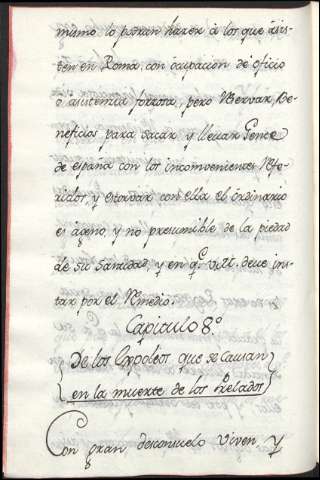 mismo lo podran hazer à los que asis-
ten en Roma con ocupacion de oficio
o asistencia forzosa, pero Reservar Be-
neficios para sacar y llevar Gente
de españa con los incombenientes Refe-
ridos, y estorvar con ella el ordinario
es ageno, y no presumible de la piedad
de su Santidad, y en q.e V.M. deve ins-
tar por el Remedio.
Capitulo 8º
De los Expoleos que se causan
en la muerte de los Prelados
Con gran desconsuelo viven y